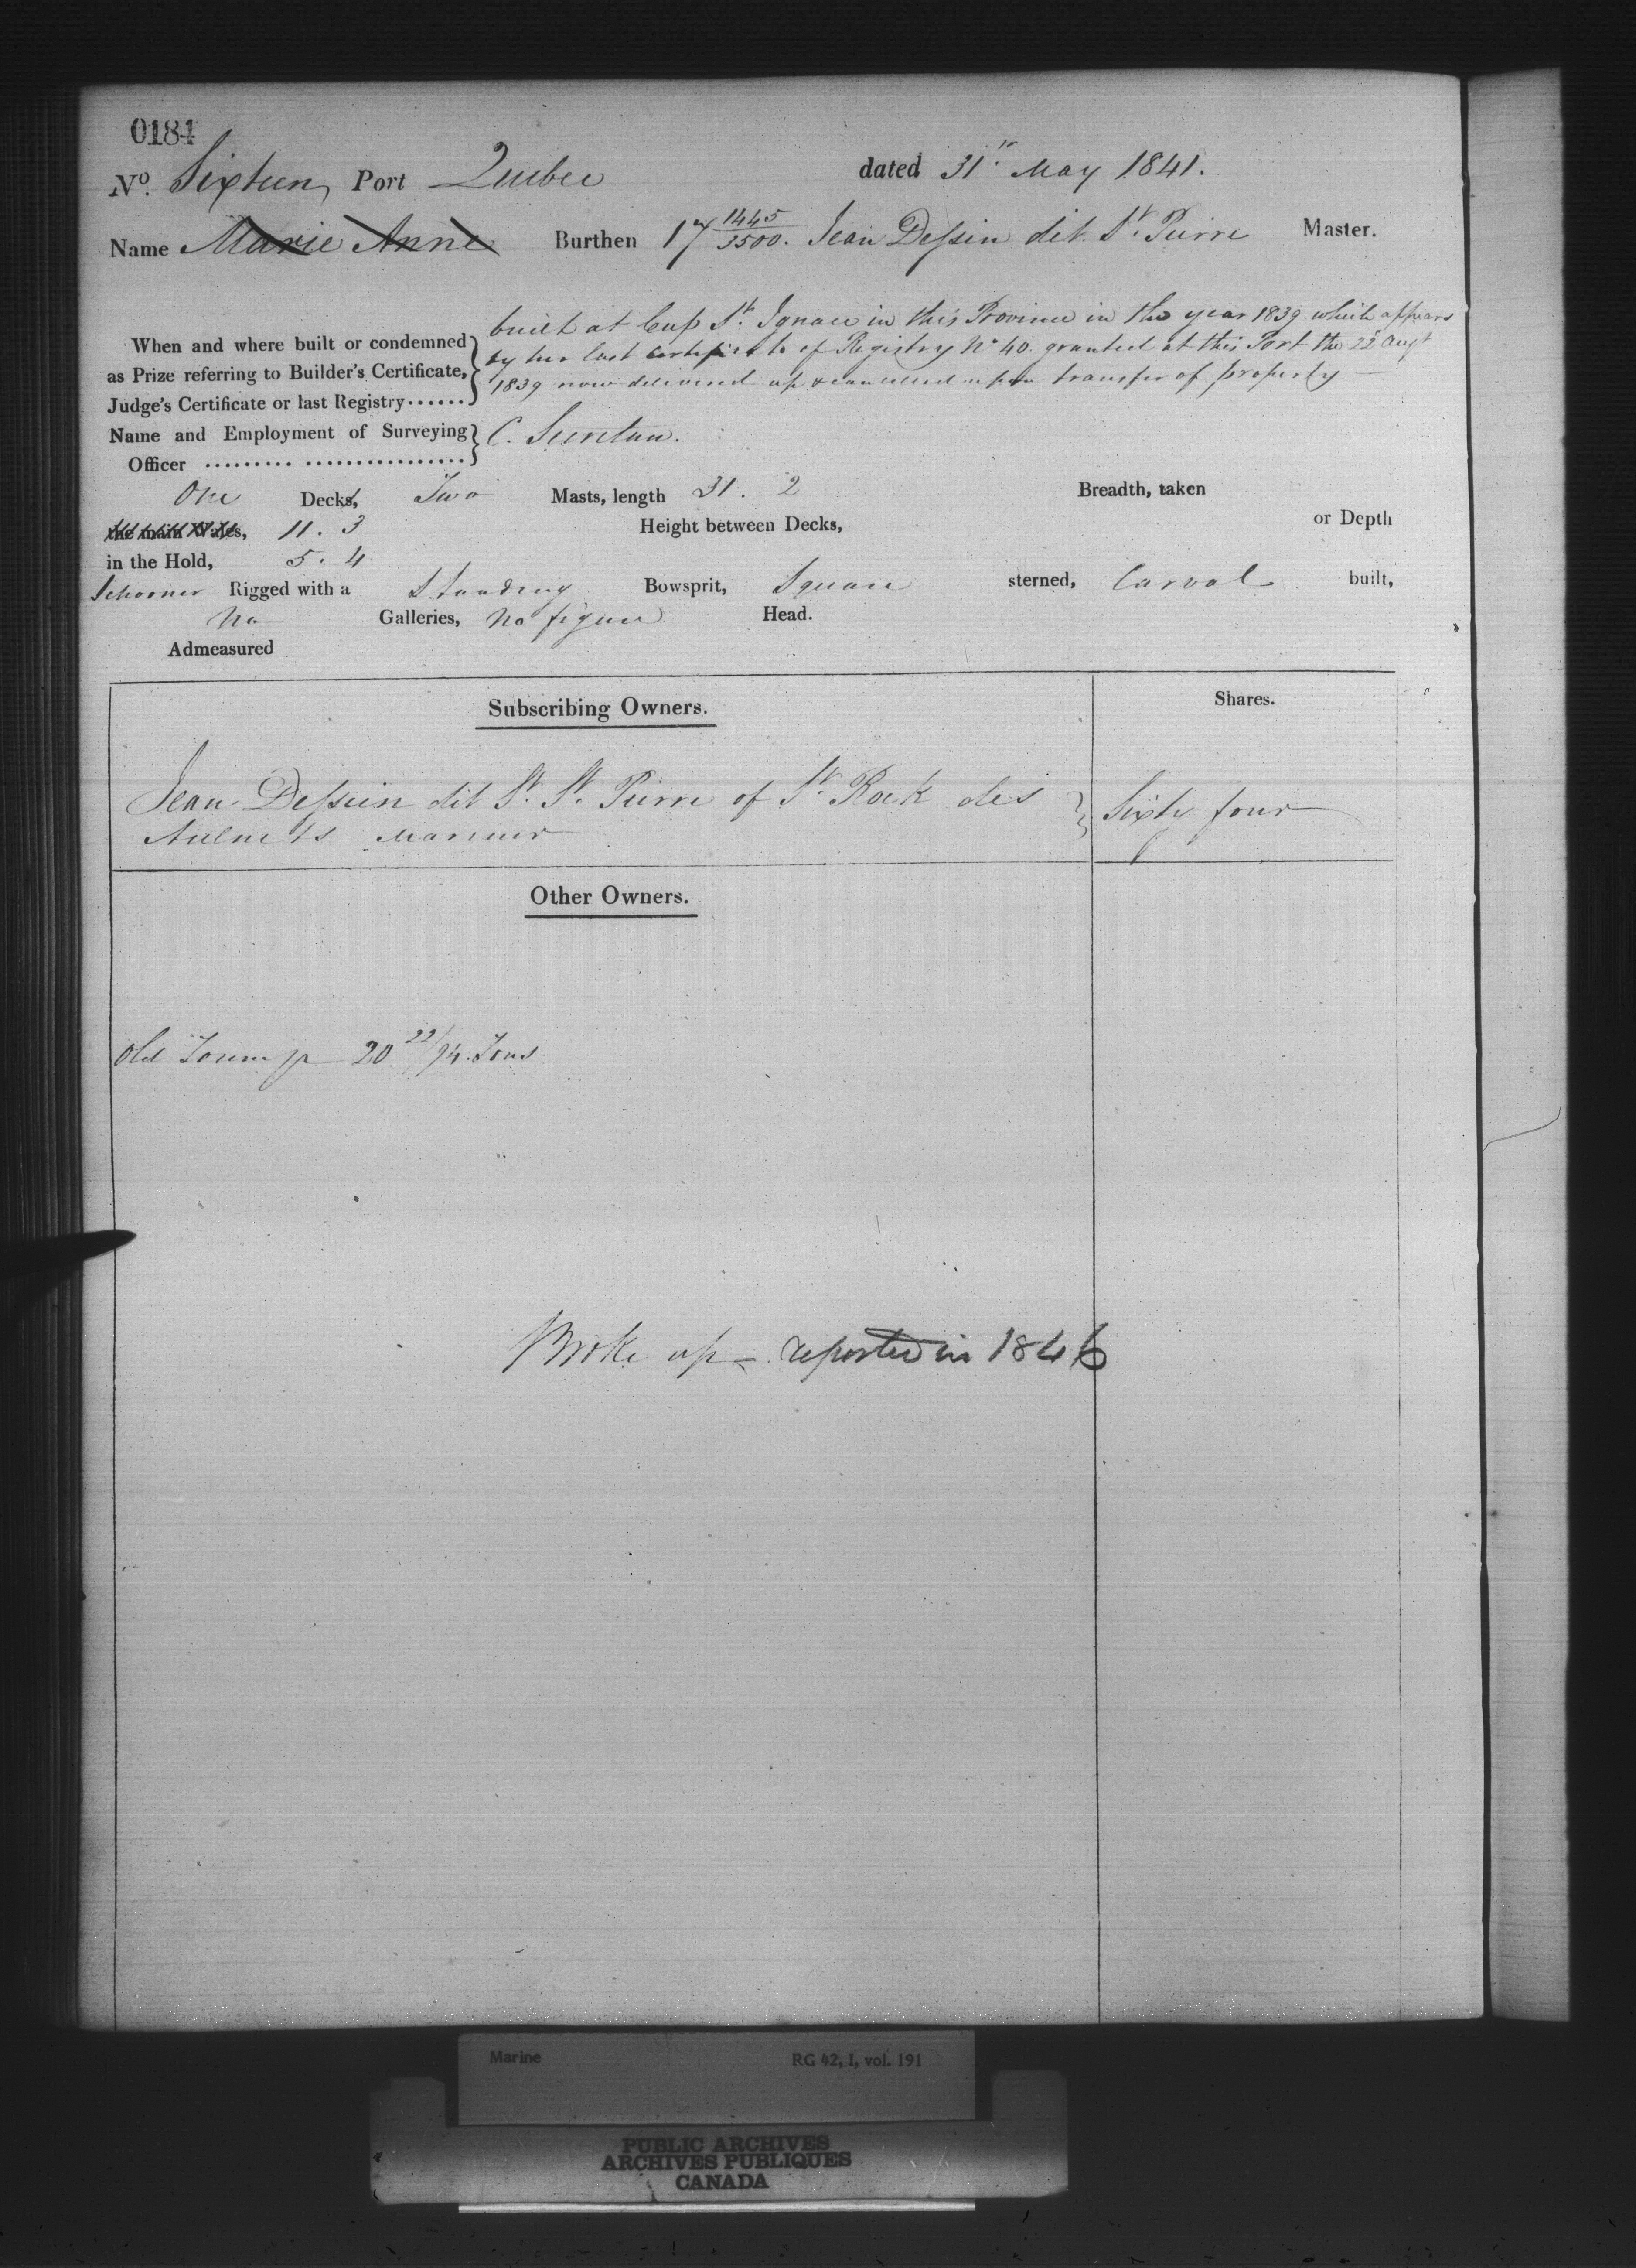 0184
No. Sixteen Port Quebec dated 31st May 1841.
Name Marie Anne Burthen 17 1445/3500. Jean Dessein dit St. Pierre Master.
built at Cap St. Ignace in this Province in the year 1839 which appears
When and where built or condemned by her last certificate of Registry No 40. granted at this Port the 22d Augt
as Prize referring to Builder's Certificate, 1839 now delivered up & cancelled upon transfer of property —
Judge's Certificate or last Registry......
Name and Employment of Surveying C.
Officer ......... ................
One Decks, Two Masts, length 31. 2 Breadth, taken
the main Wales, 11. 3 Height between Decks, or Depth
in the Hold, 5. 4
Schooner Rigged with a Standing Bowsprit, Square sterned, Carvel built,
No Galleries, No figure Head.
Admeasured
Subscribing Owners. Shares.
Jean Dessein dit St. St. Pierre of St. Rock des Sixty four
Aulnets Mariner
Other Owners.
Old 20 22/94 Tons
Broke up - reported in 1846
Marine RG 42, I, vol. 191
PUBLIC ARCHIVES
ARCHIVES PUBLIQUES
CANADA